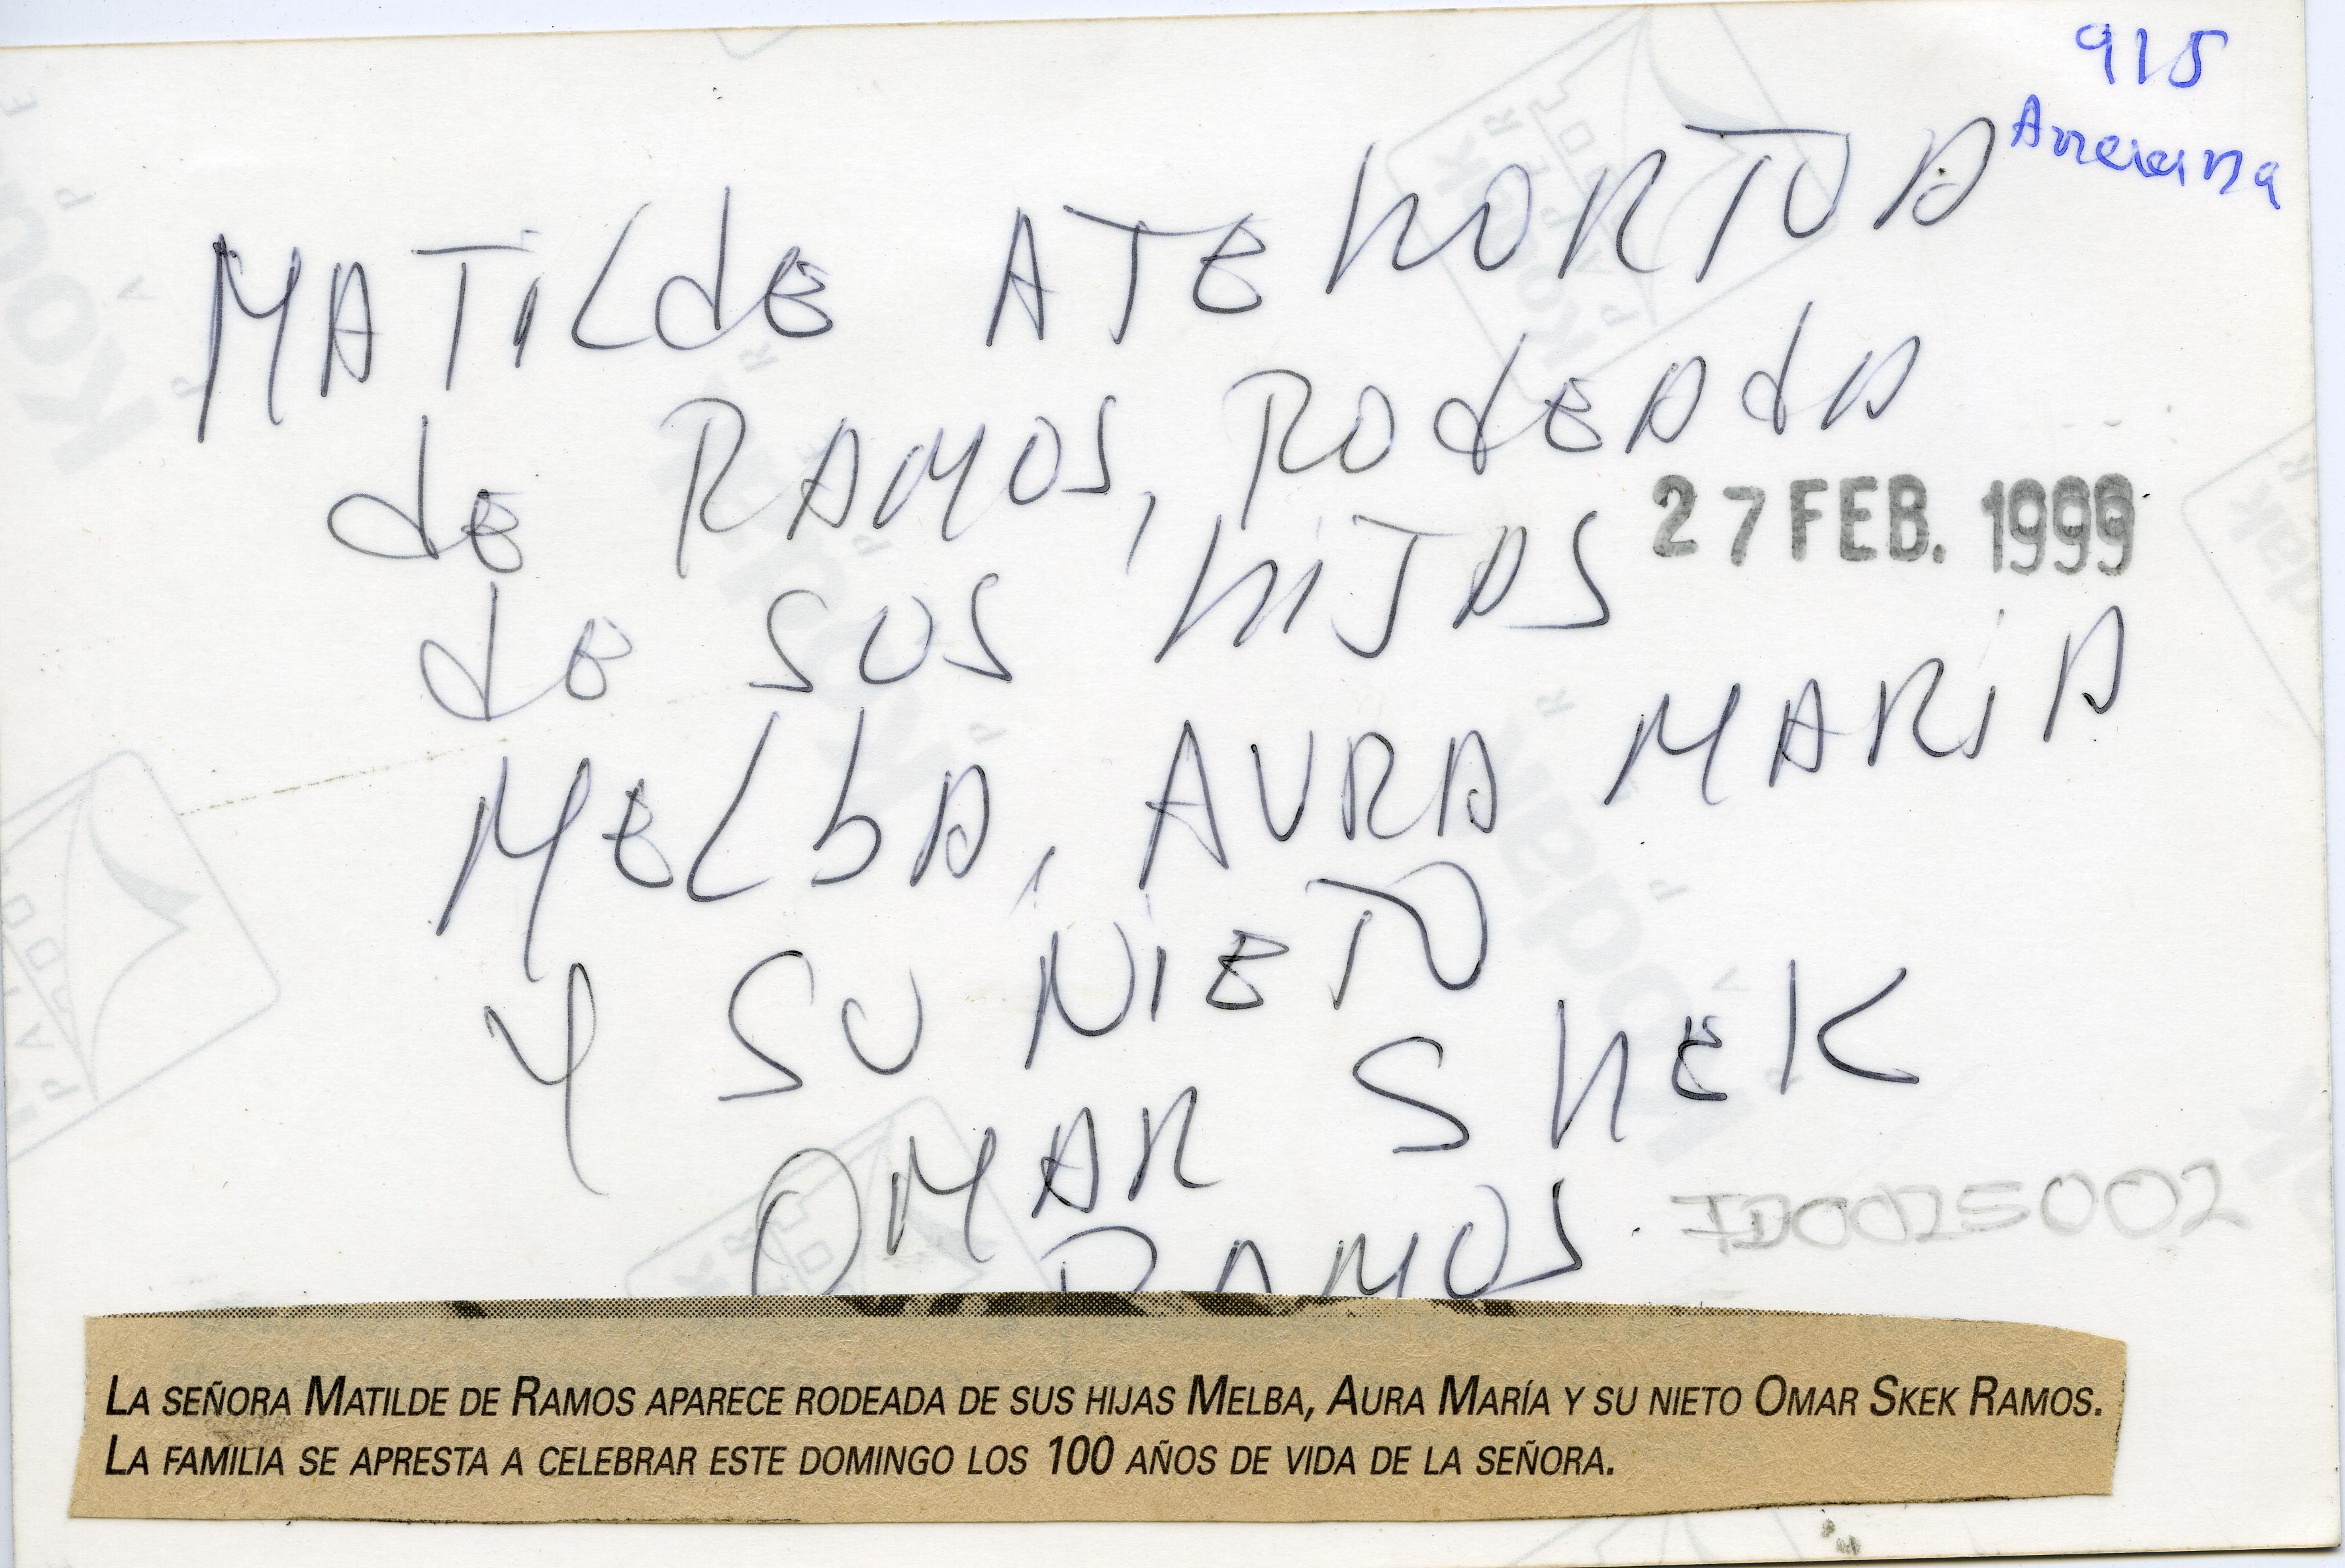 915
MATILDE ATEHORTUA
de RAMOS, RODEADA
27 FEB. 1999
de SUS HIJAS
MELBA, AURA MARIA
Y SU NIETO
OMAR SHEK
RAMOS.
ID0025002
LA SEÑORA MATILDE DE RAMOS APARECE RODEADA DE SUS HIJAS MELBA, AURA MARÍA Y SU NIETO OMAR SKEK RAMOS.
LA FAMILIA SE APRESTA A CELEBRAR ESTE DOMINGO LOS 100 AÑOS DE VIDA DE LA SEÑORA.